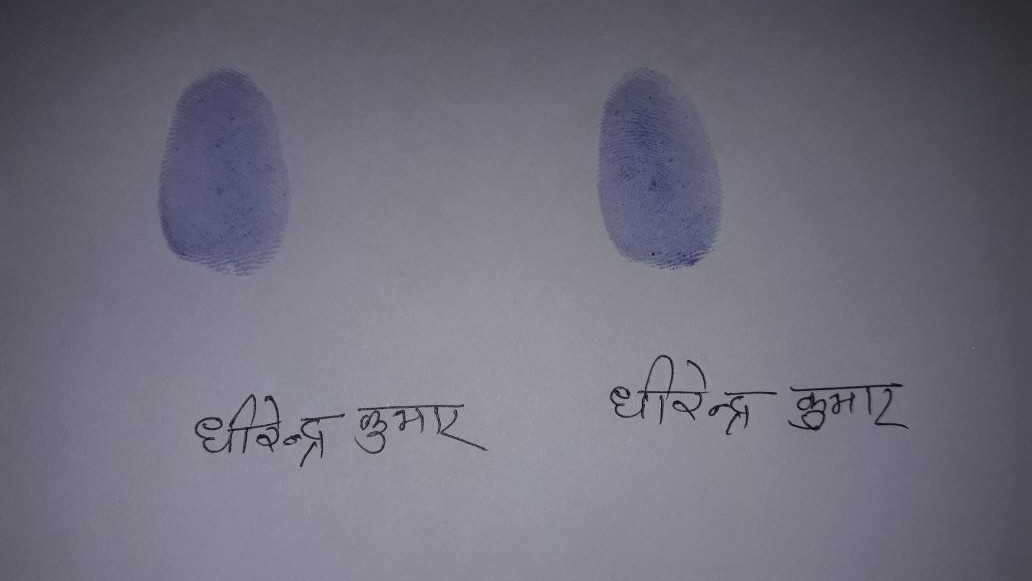 धीरेन्द्र कुमार
धीरेन्द्र कुमार